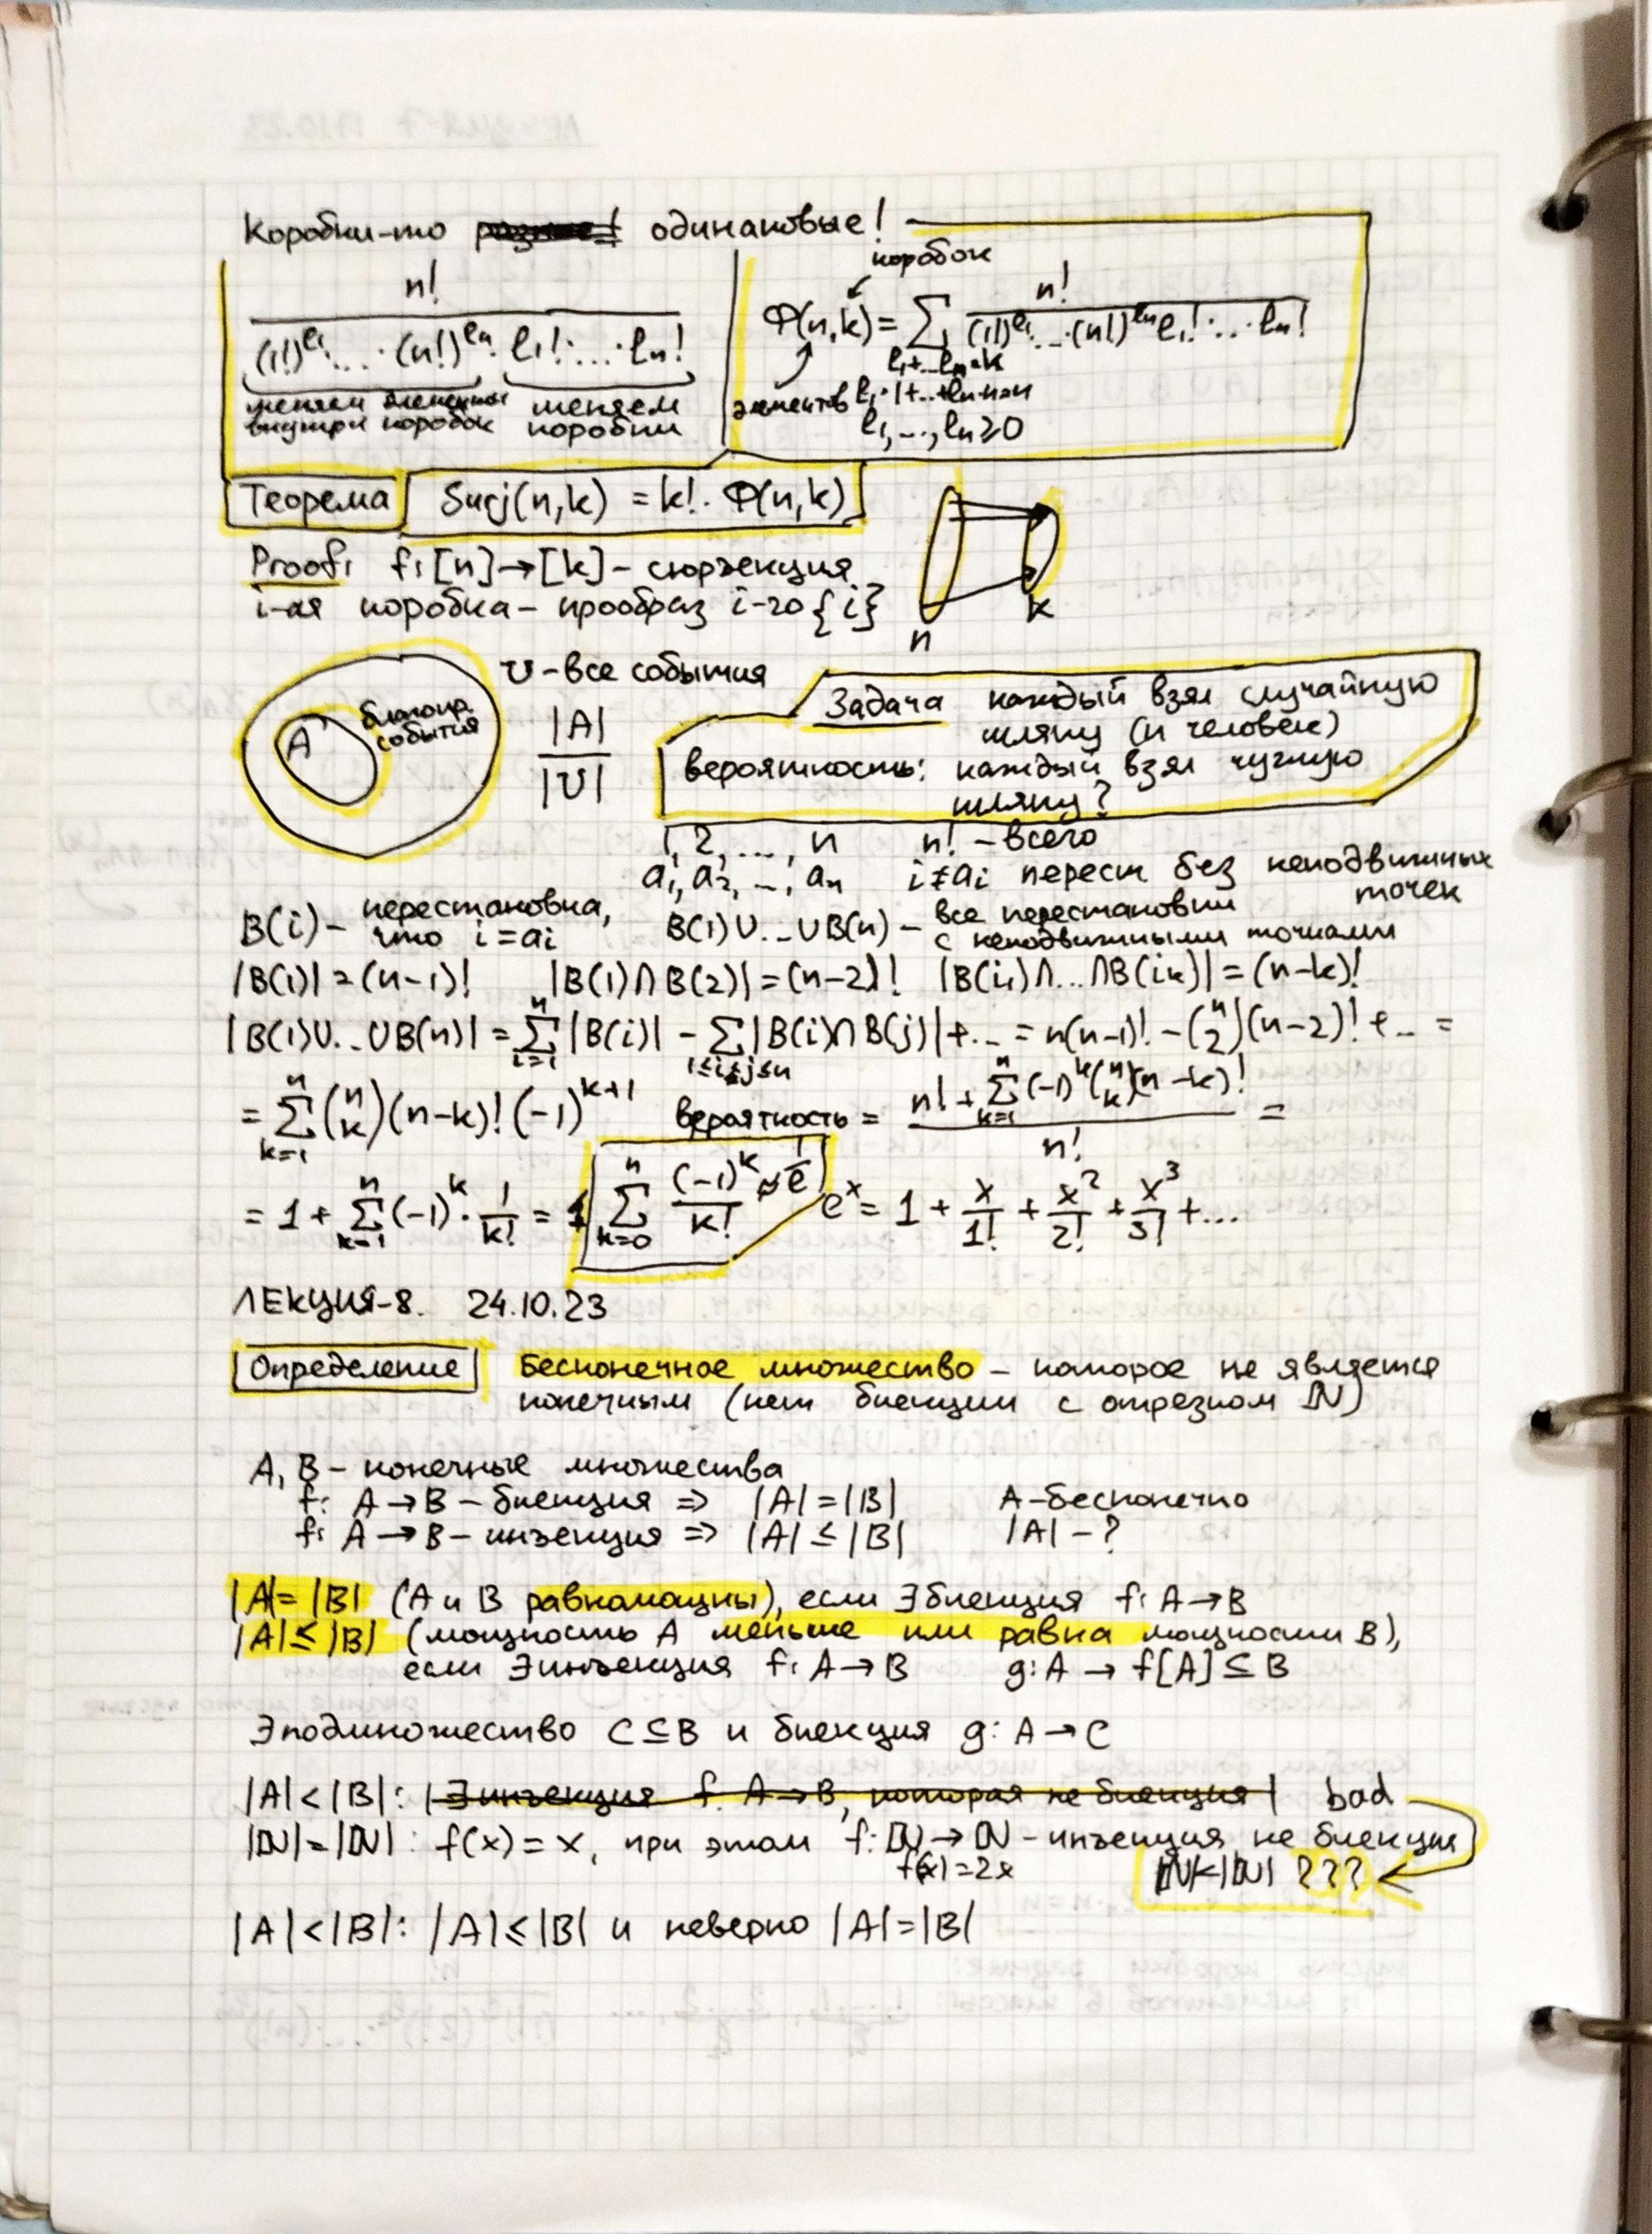 Коробки-то одинаковые!
n! / ((1!)^{l₁}·...·(n!)^{lₙ}·l₁!·...·lₙ!)
меняем элементы внутри коробок
меняем коробки
коробок
Φ(n,k) = ∑ n! / ((1!)^{l₁}·...·(n!)^{lₙ} l₁!·...·lₙ!)
l₁+...lₙ=k
элементов l₁·1+..+lₙ·n=n
l₁,...,lₙ≥0
Теорема Surj(n,k) = k!·Φ(n,k)
Proof: f: [n]→[k] – сюръекция
i-ая коробка – прообраз i-го {i}
n k
U – все события
A благопр. события
|A| / |U|
Задача каждый взял случайную
шляпу (n человек)
вероятность: каждый взял чужую
шляпу?
1, 2, ..., n n! – всего
a₁, a₂, ..., aₙ i≠aᵢ перест без неподвижных
точек
B(i) – перестановка, что i=aᵢ B(1)∪...∪B(n) – все перестановки с неподвижными точками
|B(i)| = (n-1)! |B(1)∩B(2)| = (n-2)! |B(i₁)∩...∩B(iₖ)| = (n-k)!
|B(1)∪...∪B(n)| = ∑_{i=1}^{n} |B(i)| - ∑_{1≤i≤j≤n} |B(i)∩B(j)| + ... = n(n-1)! - (n 2)(n-2)! + ... =
= ∑_{k=1}^{n} (n k)(n-k)! (-1)^{k+1} вероятность = (n! + ∑_{k=1}^{n} (-1)^k (n k)(n-k)!) / n! =
= 1 + ∑_{k=1}^{n} (-1)^k · 1/k! = ∑_{k=0}^{n} (-1)^k / k! ≈ 1/e e^x = 1 + x/1! + x²/2! + x³/3! + ...
ЛЕКЦИЯ-8. 24.10.23
Определение Бесконечное множество – которое не является
конечным (нет биекции с отрезком ℕ)
A, B – конечные множества
f: A→B – биекция => |A|=|B| A-бесконечно
f: A→B – инъекция => |A| ≤ |B| |A| – ?
|A|=|B| (A и B равномощны), если ∃ биекция f: A→B
|A|≤|B| (мощность A меньше или равна мощности B),
если ∃ инъекция f: A→B g: A → f[A] ⊆ B
∃ подмножество C⊆B и биекция g: A→C
|A|<|B|: ∃ инъекция f: A→B, которая не биекция bad
|ℕ|=|ℕ|: f(x)=x, при этом f: ℕ→ℕ – инъекция не биекция
f(x)=2x |ℕ|<|ℕ| ???
|A|<|B|: |A|≤|B| и неверно |A|=|B|